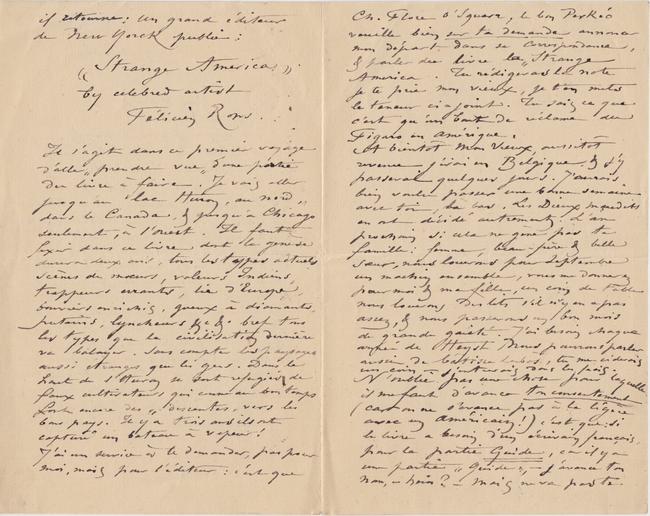 il retourne : un grand éditeur
de New Yorck publie :
« Strange America »
by celebred artist
Félicien Rops.
Il s'agit dans ce premier voyage
d'aller « prendre vue » d'une partie
du livre à faire. Je vais aller
jusqu'au lac Huron, au nord,
dans le Canada, & jusqu'à Chicago
seulement, à l'ouest. Il faut
fixer dans ce livre dont la genèse
durera deux ans, tous les types actuels
scènes de mœurs, voleurs Indiens,
trappeurs errants, lie d'Europe,
bouviers enrichis, gueux à diamants,
putains, lyncheurs &c &c bref tous
les types que la civilisation dernière
va balayer. Sans compter les paysages
aussi étranges que les gens. Dans le
haut de l'Huron se sont refugiés de
faux cultivateurs qui comme au bon temps
font encore des « descentes » vers les
bas pays. Il y a trois ans ils ont
capturé un bateau à vapeur !
J'ai un service à te demander, pas pour
moi, mais pour l'éditeur : c'est que
Ch. Flore O'Squarr, le bon Perkéo
veuille bien sur ta demande annoncer
mon départ dans sa correspondance,
& parler du livre la « Strange
America ». Tu rédigeras la note
je te prie mon vieux, je t'en mets
la teneur ci-joint. Tu sais ce que
c'est qu'un bout de réclame du
Figaro en Amérique !
Et bientôt mon Vieux, aussitôt
revenu j'irai en Belgique & j'y
passerai quelques jours. J'aurais
bien voulu passer une bonne semaine
avec toi là bas. Les Dieux impedits
en ont décidé autrement. L'an
prochain si cela ne gêne pas ta
famille : femme, beau-père & belle
sœur, nous louerons pour Septembre
un matin ensemble, vous me donnerez
pour moi & ma fille, un coin de table
nous louerons des lits s'il n'y en a pas
assez, & nous passerons un bon mois
de grande gaieté. J'ai besoin chaque
année de Heyst. Nous pourrons parler
aussi de tu me cèderais
un coin
N'oublie pas une chose pour laquelle
il me faut d'avance ton consentement
(car on ne s'avance pas à la légère
avec un Américain !) c'est que si
le livre a besoin d'un écrivain français,
pour la partie Guide, car il y a
une partie « Guide », – j'avance ton
nom, – hein ? – mais ne va pas te